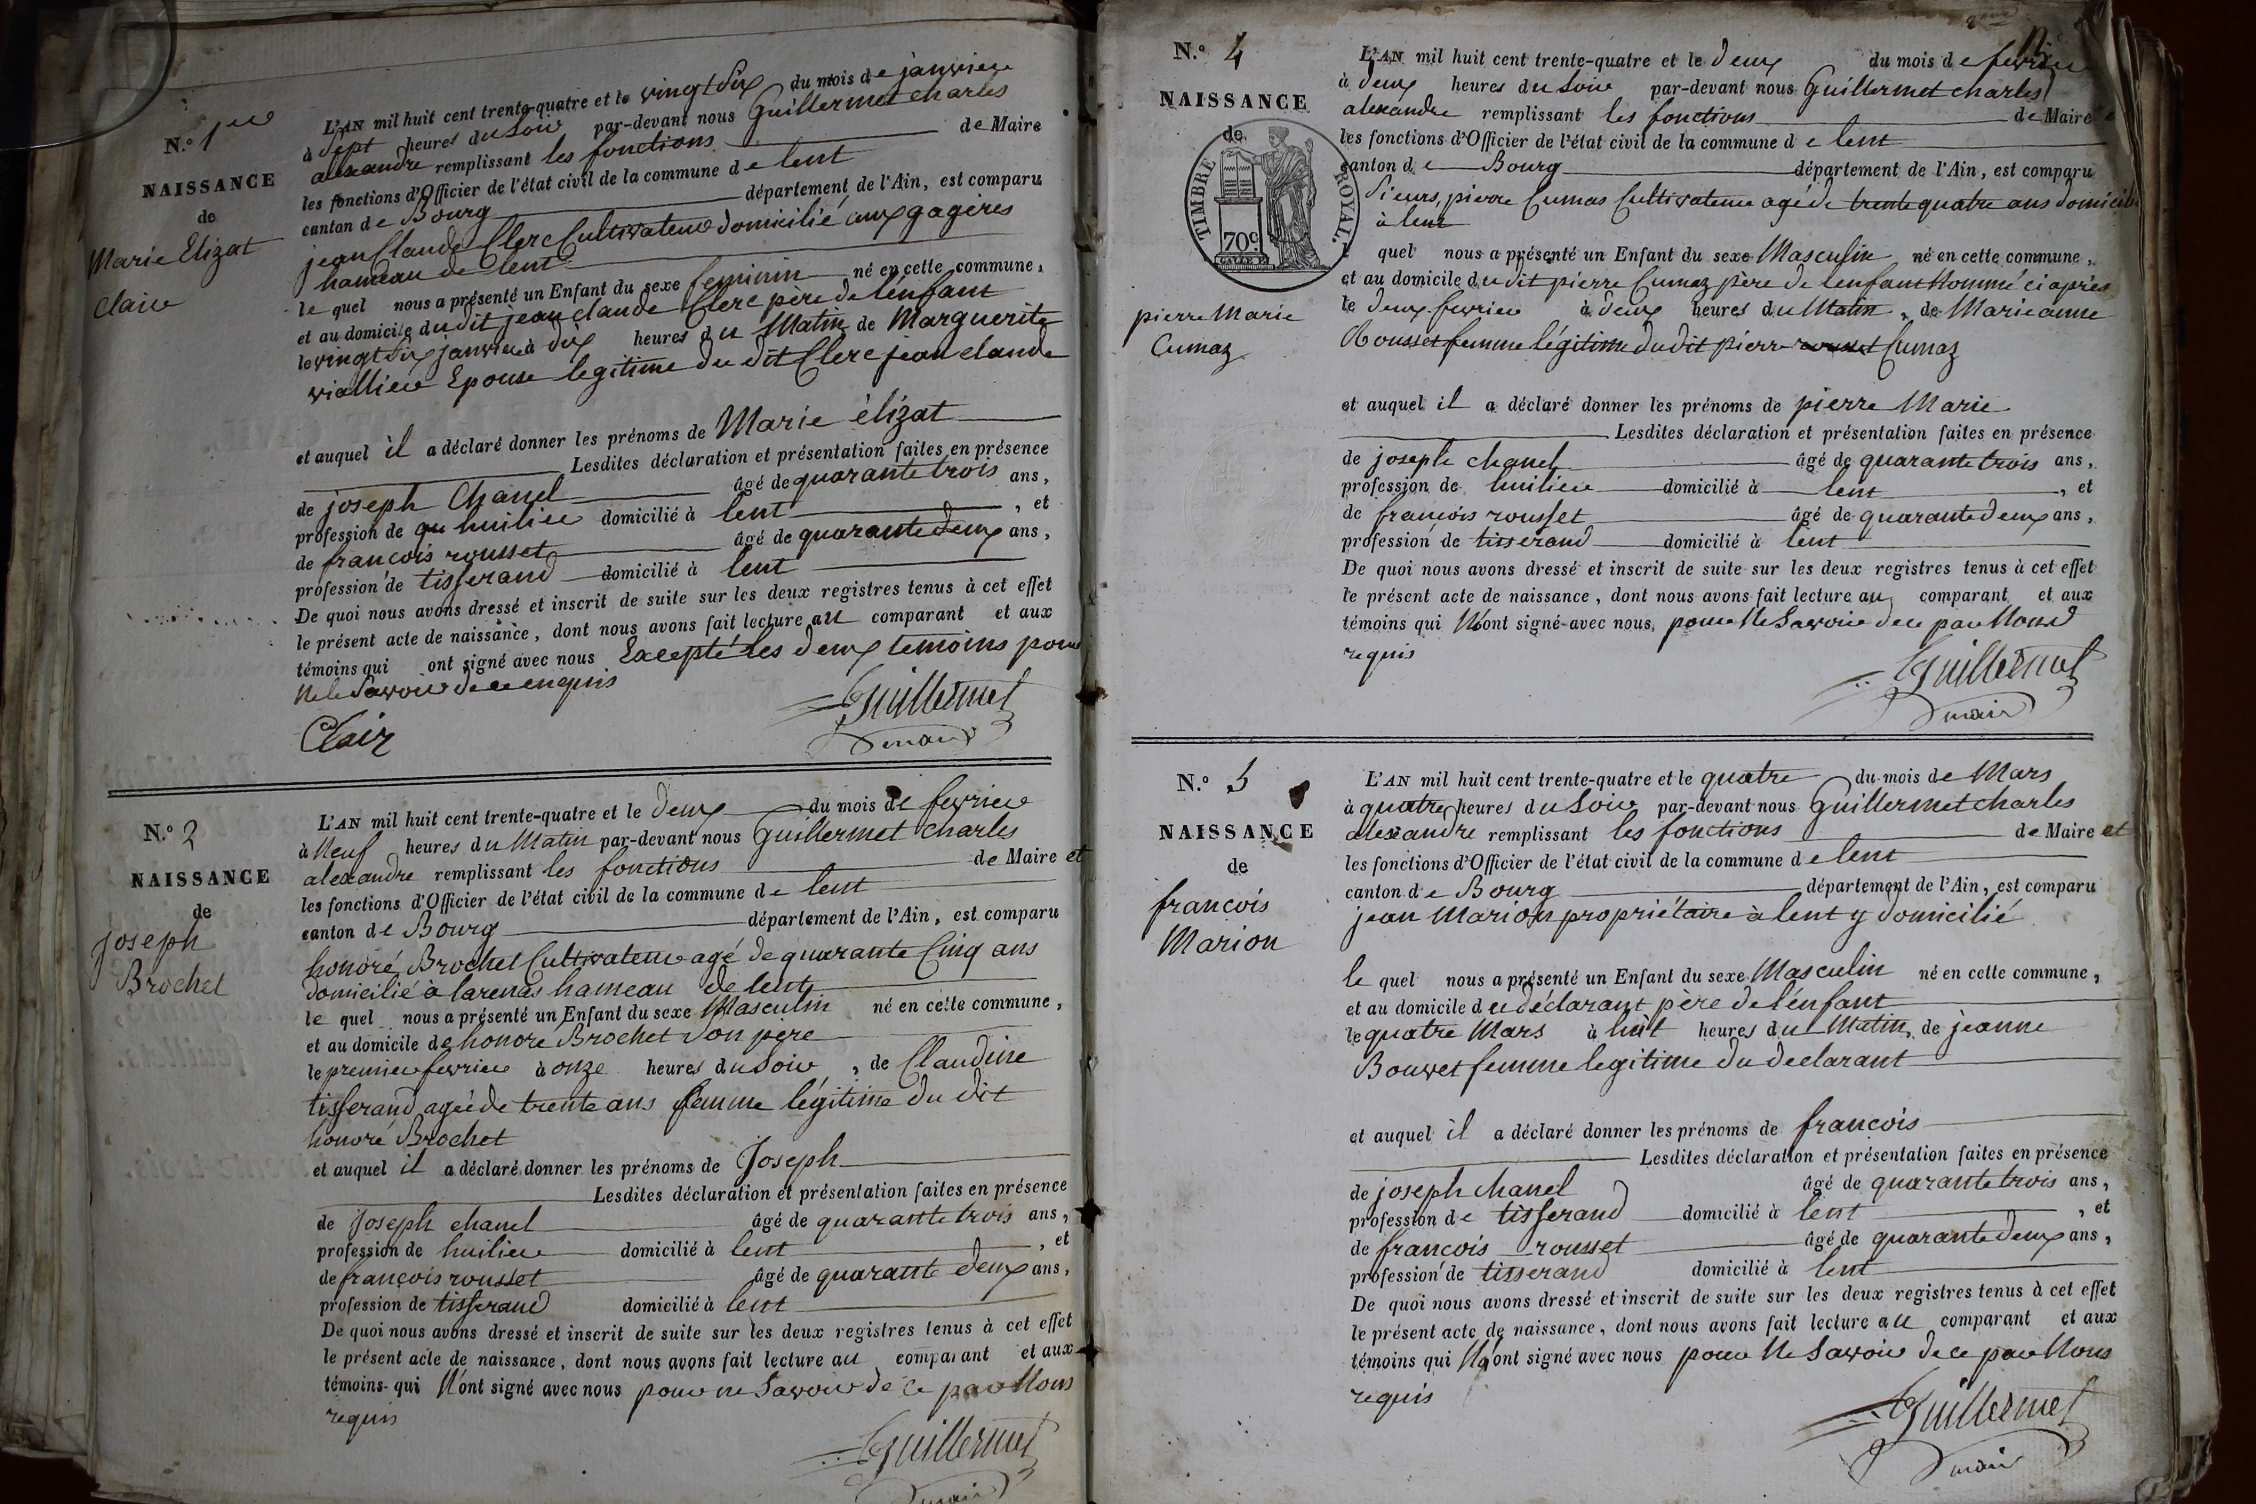 N.o 1ere
NAISSANCE
de
Marie Elizat
Clair
L'AN mil huit cent trente-quatre et le vingt Six du mois de janvier
à Sept heures du Soir par-devant nous Guillermet charles
alexandre remplissant les fonctions de Maire
les fonctions d'Officier de l'état civil de la commune de lent
canton de Bourg département de l'Ain, est comparu
jean Claude Clerc Cultivateur domicilié aux gagères
hameau de lent
le quel nous a présenté un Enfant du sexe feminin né en cette commune,
et au domicile du dit jean claude Clerc père de l'enfant
le vingt Six janvier à dix heures du Matin de Marguerite
viallier Epouse legitime du dit Clerc jean claude
et auquel il a déclaré donner les prénoms de Marie élizat
Lesdites déclaration et présentation faites en présence
de joseph Chanel âgé de quarante trois ans,
profession de huilier domicilié à lent, et
de francois rousset âgé de quarante deux ans,
profession de tisserand domicilié à lent
De quoi nous avons dressé et inscrit de suite sur les deux registres tenus à cet effet
le présent acte de naissance, dont nous avons fait lecture au comparant et aux
témoins qui ont signé avec nous Excepté les deux temoins pour
Ne le Savoir de ce enquis
Clair
Guillermet
maire
N.o 2
NAISSANCE
de
joseph
Brochet
L'AN mil huit cent trente-quatre et le deux du mois de fevrier
à Neuf heures du Matin par-devant nous Guillermet charles
alexandre remplissant les fonctions de Maire et
les fonctions d'Officier de l'état civil de la commune de lent
canton de Bourg département de l'Ain, est comparu
honoré Brochet Cultivateur agé de quarante Cinq ans
domicilié à larenas hameau de lent
le quel nous a présenté un Enfant du sexe Masculin né en cette commune,
et au domicile de honore Brochet Son pere
le premier fevrier à onze heures du Soir, de Claudine
tisserand agée de trente ans femme légitime du dit
honoré Brochet
et auquel il a déclaré donner les prénoms de Joseph
Lesdites déclaration et présentation faites en présence
de Joseph chanel âgé de quarante trois ans,
profession de huilier domicilié à lent, et
de françois rousset âgé de quarante deux ans,
profession de tisserand domicilié à lent
De quoi nous avons dressé et inscrit de suite sur les deux registres tenus à cet effet
le présent acte de naissance, dont nous avons fait lecture au comparant et aux
témoins qui N'ont signé avec nous pour ne Savoir de ce par Nous
requis
Guillermet
maire
N.o 4
NAISSANCE
de
TIMBRE ROYAL.
70c.
pierre Marie
Cumaz
L'AN mil huit cent trente-quatre et le deux du mois de fevrier
à deux heures du Soir par-devant nous Guillermet charles
alexandre remplissant les fonctions de Maire
les fonctions d'Officier de l'état civil de la commune de lent
canton de Bourg département de l'Ain, est comparu
Sieurs, pierre Cumas Cultivateur agé de trente quatre ans domicilié
à lent
quel nous a présenté un Enfant du sexe Masculin né en cette commune,
et au domicile du dit pierre Cumaz père de lenfant Nommé ci après
le deux fevrier à deux heures du Matin, de Marie anne
Rousset femme légitime du dit pierre Cumaz
et auquel il a déclaré donner les prénoms de pierre Marie
Lesdites déclaration et présentation faites en présence
de joseph chanel âgé de quarante trois ans,
profession de huilier domicilié à lent, et
de françois rousset âgé de quarante deux ans,
profession de tisserand domicilié à lent
De quoi nous avons dressé et inscrit de suite sur les deux registres tenus à cet effet
le présent acte de naissance, dont nous avons fait lecture au comparant et aux
témoins qui N'ont signé avec nous, pour Ne Savoir de ce par Nous
requis
Guillermet
maire
N.o 5
NAISSANCE
de
françois
Marion
L'AN mil huit cent trente-quatre et le quatre du mois de Mars
à quatre heures du Soir par-devant nous Guillermet charles
alexandre remplissant les fonctions de Maire et
les fonctions d'Officier de l'état civil de la commune de lent
canton de Bourg département de l'Ain, est comparu
jean Marion propriétaire à lent y domicilié
le quel nous a présenté un Enfant du sexe Masculin né en cette commune,
et au domicile du déclarant père de l'enfant
le quatre Mars à huit heures du Matin, de jeanne
Bouvet femme legitime du declarant
et auquel il a déclaré donner les prénoms de françois
Lesdites déclaration et présentation faites en présence
de joseph chanel âgé de quarante trois ans,
profession de tisserand domicilié à lent, et
de françois rousset âgé de quarante deux ans,
profession de tisserand domicilié à lent
De quoi nous avons dressé et inscrit de suite sur les deux registres tenus à cet effet
le présent acte de naissance, dont nous avons fait lecture au comparant et aux
témoins qui N'ont signé avec nous pour Ne Savoir de ce par Nous
requis
Guillermet
maire